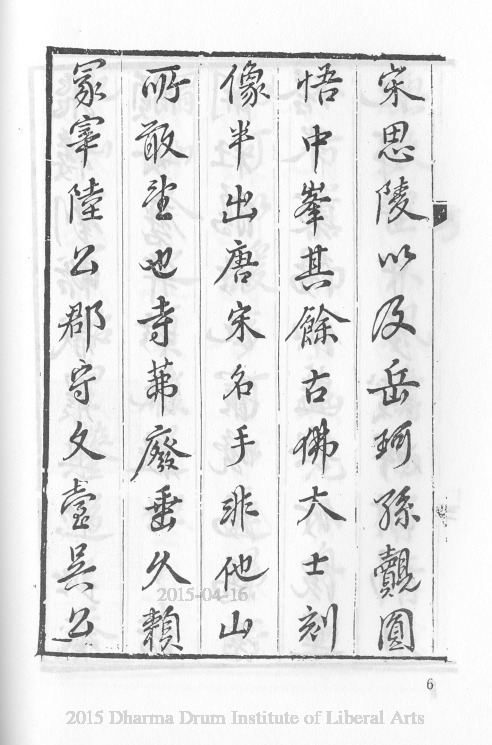 宋思陵以及岳珂孫覿圓
悟中峯其餘古佛大士刻
像半出唐宋名手非他山
所敢望也寺茀廢垂久賴
冢宰陸公郡守文臺吳公
6
2015-04-16
2015 Dharma Drum Institute of Liberal Arts